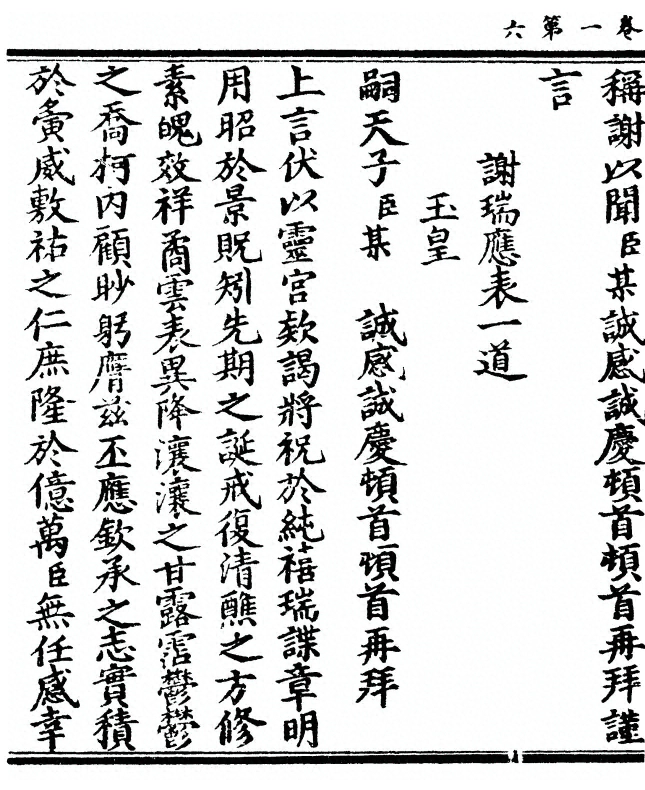 卷一第六
稱謝以聞臣某誠感誠慶頓首頓首再拜謹
言
謝瑞應表一道
玉皇
嗣天子臣某 誠感誠慶頓首頓首再拜
上言伏以靈宮欵謁將祝於純禧瑞諜章明
用昭於景貺矧先期之誕戒復清醮之方修
素魄效祥矞雲表異降瀼瀼之甘露霑鬱鬱
之喬柯内顧眇躬膺兹丕應欽承之志實積
於夤威敷祐之仁庶隆於億萬臣無任感幸